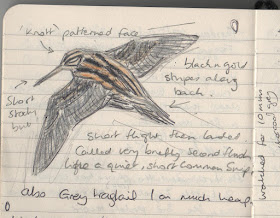 'Knott' patterned face
black n gold
stripes along
back.
Short
stocky
bill
short flight then landed
Called very briefly second flush
like a quiet, short Common Snipe
also Grey Wagtail 1 on much heap
watched for 10 mins